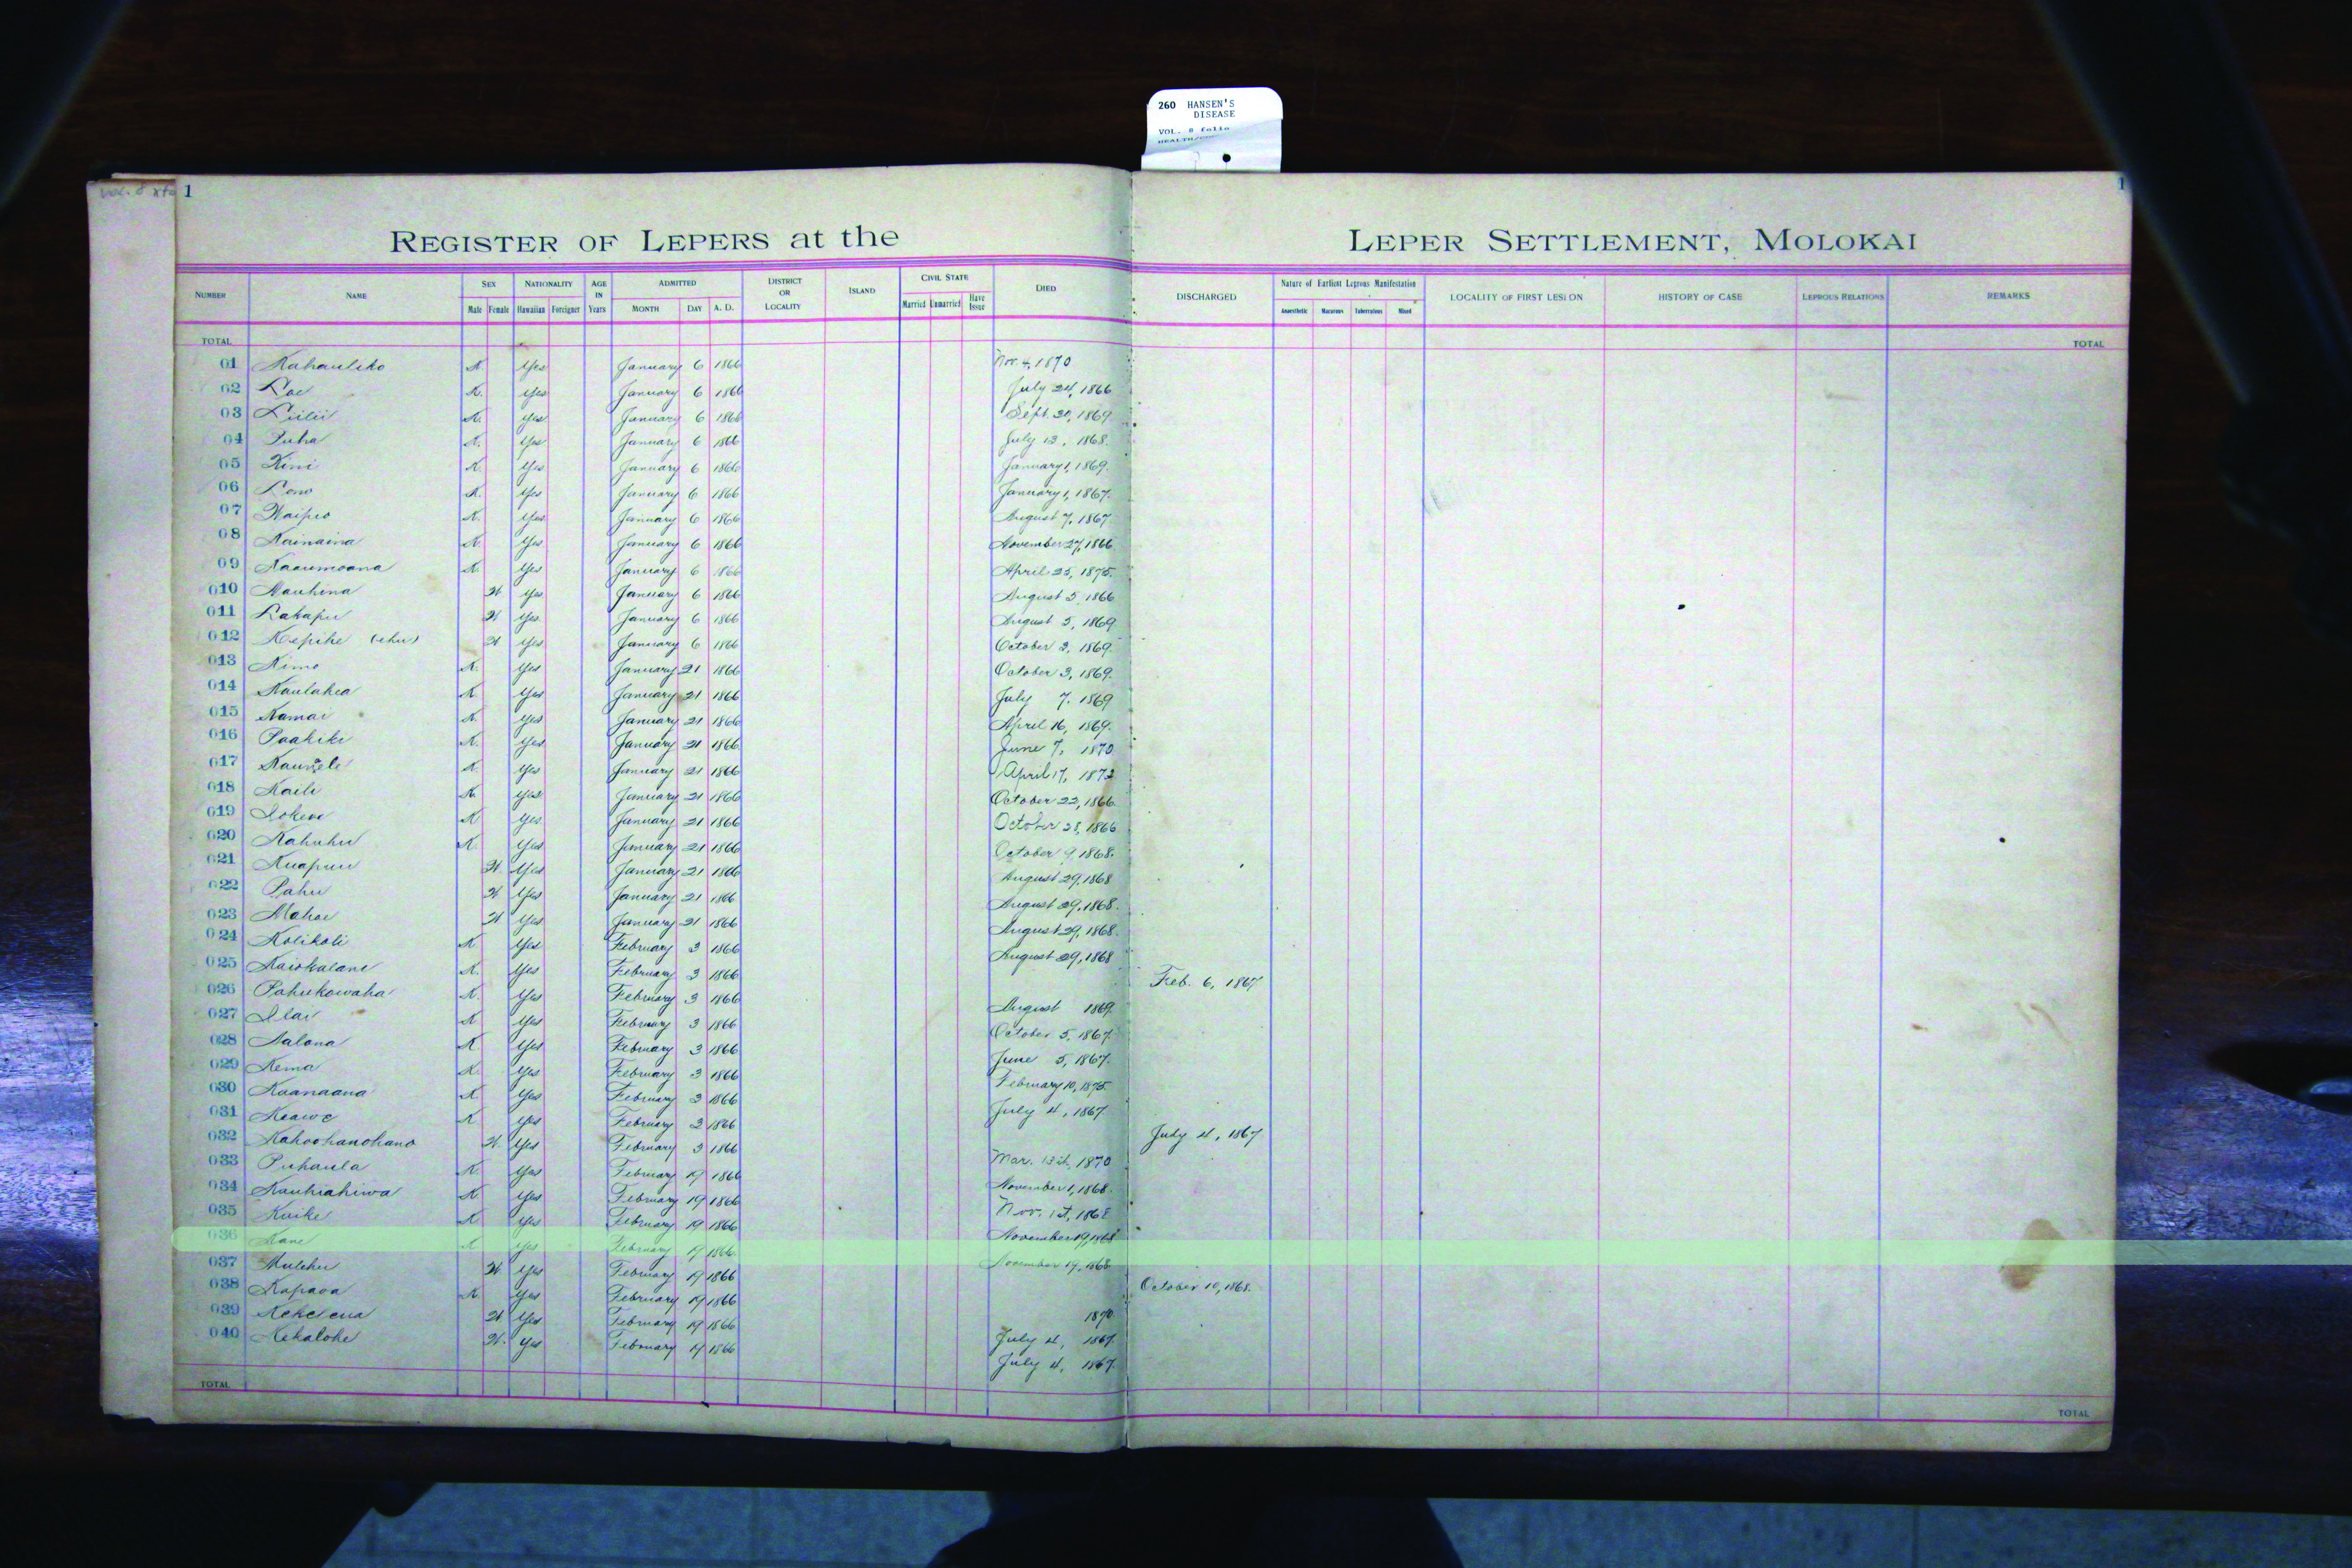 260 HANSEN'S
DISEASE
VOL. 8 folio
1
1
REGISTER OF LEPERS at the LEPER SETTLEMENT, MOLOKAI
NUMBER NAME SEX Male Female NATIONALITY Hawaiian Foreigner AGE IN Years ADMITTED MONTH DAY A. D. DISTRICT OR LOCALITY ISLAND CIVIL STATE Married Unmarried Have Issue DIED DISCHARGED Nature of Earliest Leprous Manifestation Anaesthetic Macurous Tuberculous Mixed LOCALITY OF FIRST LESION HISTORY OF CASE LEPROUS RELATIONS REMARKS
TOTAL TOTAL
01 Kahauliko K. Yes January 6 1866 Nov. 4, 1870
02 Loe K. Yes January 6 1866 July 24, 1866
03 Liilii K. Yes January 6 1866 Sept. 20, 1869
04 Puha K. Yes January 6 1866 July 13, 1868.
05 Kini K. Yes January 6 1866 January 1, 1869.
06 Lono K. Yes January 6 1866 January 1, 1867.
07 Waipio K. Yes January 6 1866 August 7, 1867
08 Kainaina K. Yes January 6 1866 November 27, 1866
09 Kaaumoana K. Yes January 6 1866 April 25, 1875.
010 Nauhina W Yes January 6 1866 August 5, 1866
011 Lakapu W Yes January 6 1866 August 5, 1869
012 Kepihe (ehu) W Yes January 6 1866 October 3, 1869.
013 Kimo K. Yes January 21 1866 October 3, 1869.
014 Kaulahea K Yes January 21 1866 July 7, 1869
015 Kamai K. Yes January 21 1866 April 16, 1869.
016 Paakiki K. Yes January 21 1866 June 7, 1870
017 K. Yes January 21 1866 April 17, 1872
018 Kaili K. Yes January 21 1866 October 22, 1866.
019 Iokewe K Yes January 21 1866 October 28, 1866
020 Kahuhu K. Yes January 21 1866 October 9, 1868.
021 Kuapuu W. Yes January 21 1866 August 29, 1868
022 Pahu W Yes January 21 1866 August 29, 1868.
023 Mahoe W Yes January 21 1866 August 29, 1868.
024 Kolikoli K Yes February 3 1866 August 29, 1868
025 Kaiokalani K. Yes February 3 1866 Feb. 6, 1867
026 Pahukowaha K. Yes February 3 1866 August 1869
027 Ilai K Yes February 3 1866 October 5, 1867
028 Aalona K Yes February 3 1866 June 5, 1867.
029 Kema K. Yes February 3 1866 February 10, 1875
030 Kaanaana K Yes February 3 1866 July 4, 1867
031 Keawe K. Yes February 3 1866 July 4, 1867
032 Kahoohanohano W. Yes February 3 1866 Mar. 13th, 1870
033 Puhaula K. Yes February 19 1866 November 1, 1868.
034 Kauhiahiwa K Yes February 19 1866 Nov. 1st, 1868
035 Kuike K Yes February 19 1866 November 19, 1868
036 Kane K Yes February 19 1866 November 19, 1868
037 Mulehu W. Yes February 19 1866 October 10, 1868.
038 Kapaoa K. Yes February 19 1866 1870
039 Kekelena W Yes February 19 1866 July 4, 1867.
040 Kekalohe W. Yes February 19 1866 July 4, 1867.
TOTAL TOTAL